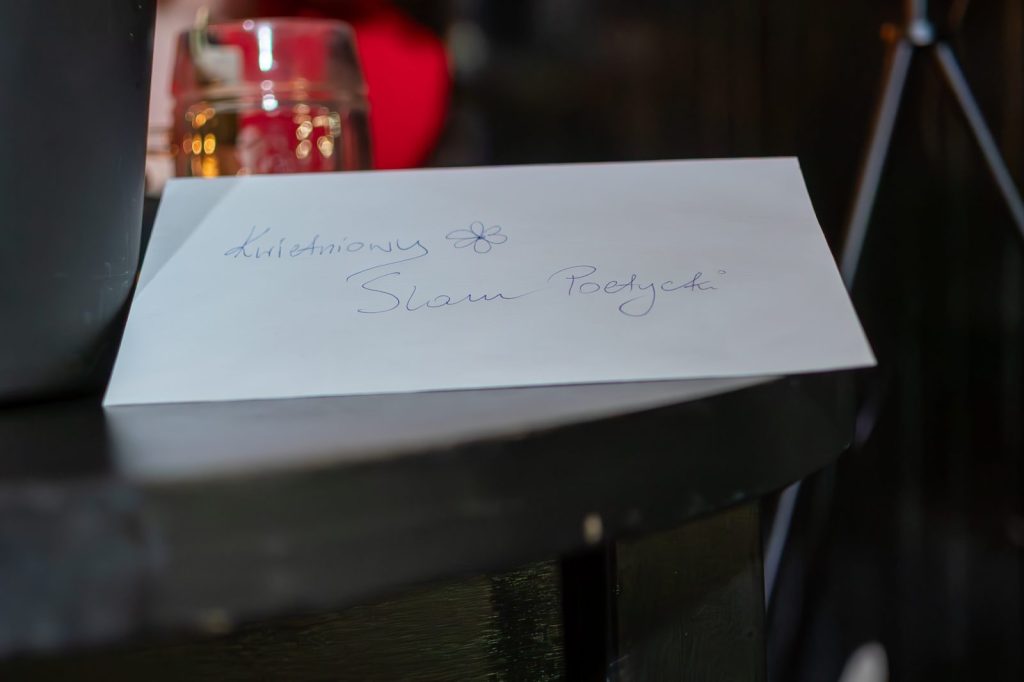 Kwietniowy
Slam Poetycki